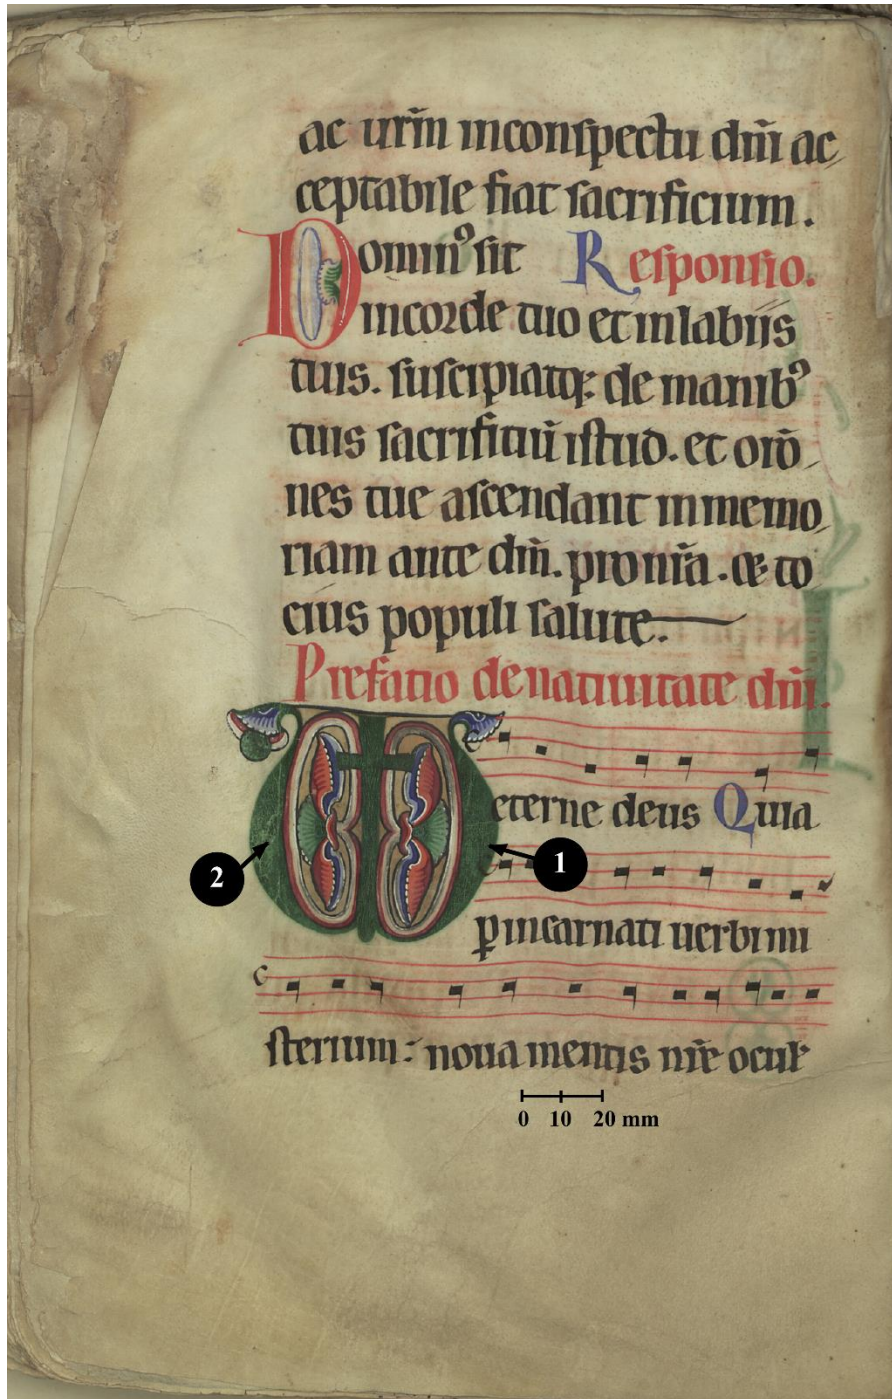 ac urm̄ inconspectu dn̄i ac
ceptabile fiat sacrificium.
Domin⁹ sit Responsio.
incorde tuo et inlabiis
tuis. suscipiatq; de manib⁹
tuis sacrifitiū istud. et orō
nes tue ascendant inmemo
riam ante dm̄. pro nr̄a. & to
cius populi salute.
Prefatio denatiuitate dn̄i.
eterne deus Quia
ꝑ incarnati uerbi mi
sterium: noua mentis nr̄e ocul
1
2
0 10 20 mm